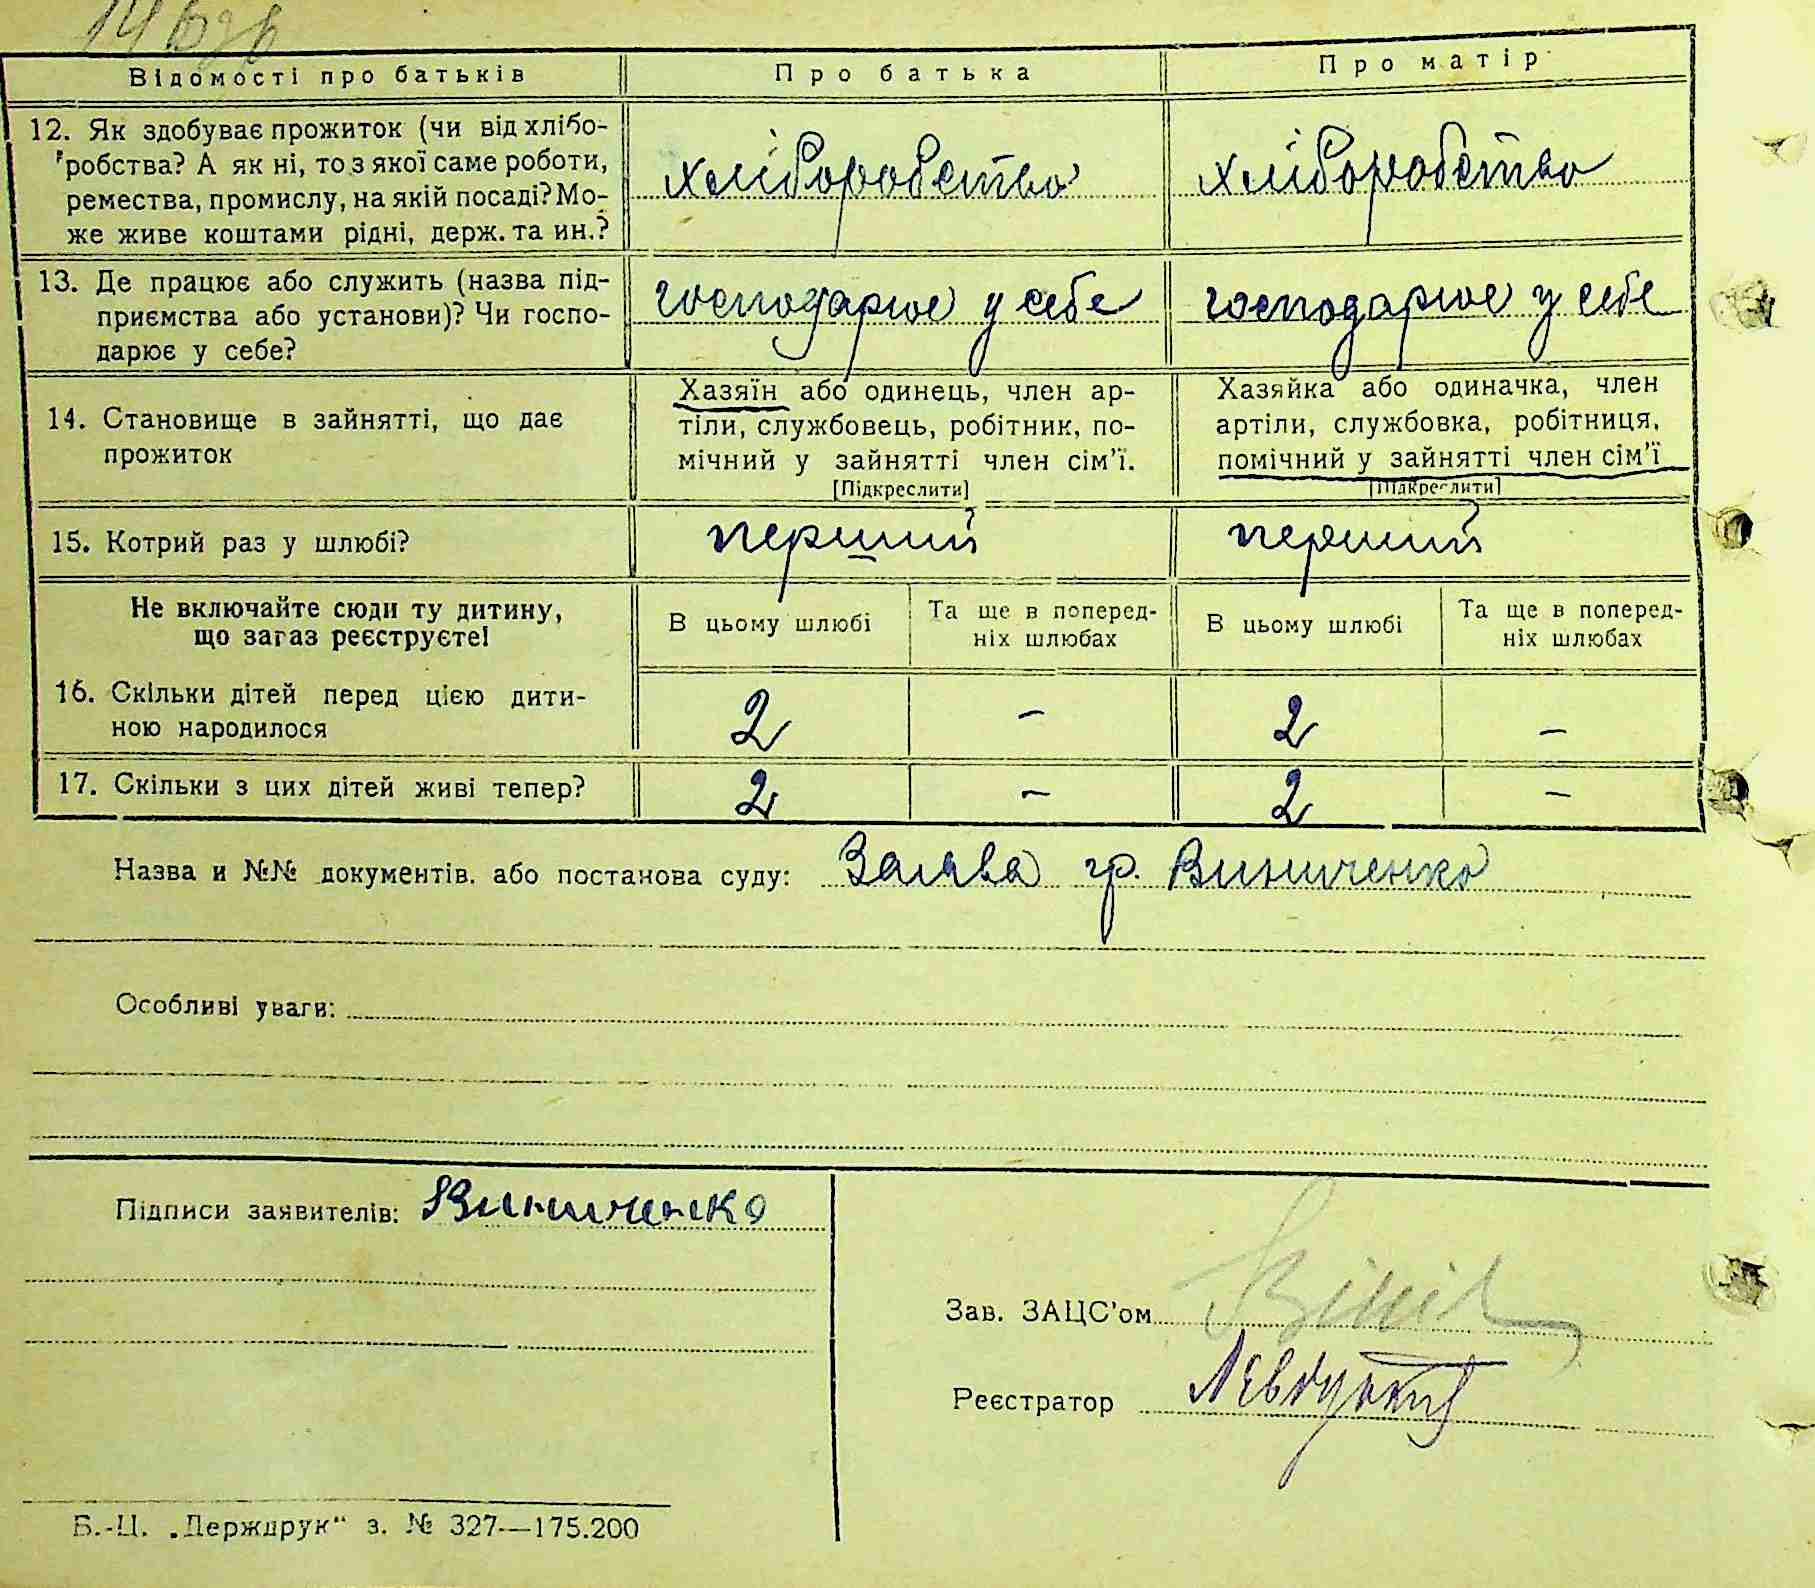 14 взв
Відомості про батьків Про батька Про матір
12. Як здобуває прожиток (чи від хлібо-
робства? А як ні, то з якої саме роботи,
ремества, промислу, на якій посаді? Мо-
же живе коштами рідні, держ. та ин.?
хліборобство хліборобство
13. Де працює або служить (назва під-
приємства або установи)? Чи госпо-
дарює у себе?
господарює у себе господарює у себе
14. Становище в зайнятті, що дає
прожиток
Хазяїн або одинець, член ар-
тіли, службовець, робітник, по-
мічний у зайнятті член сім'ї.
[Підкреслити]
Хазяйка або одиначка, член
артіли, службовка, робітниця,
помічний у зайнятті член сім'ї
[Підкреслити]
15. Котрий раз у шлюбі? перший перший
Не включайте сюди ту дитину,
що загаз реєструєте!
В цьому шлюбі
Та ще в поперед-
ніх шлюбах
В цьому шлюбі
Та ще в поперед-
ніх шлюбах
16. Скільки дітей перед цією дити-
ною народилося
2 – 2 –
17. Скільки з цих дітей живі тепер? 2 – 2 –
Назва и №№ документів. або постанова суду: Заява гр. Виниченко
Особливі уваги:
Підписи заявителів: Виниченко
Зав. ЗАЦС'ом
Реєстратор
Б.-Ц. „Держдрук" з. № 327—175.200